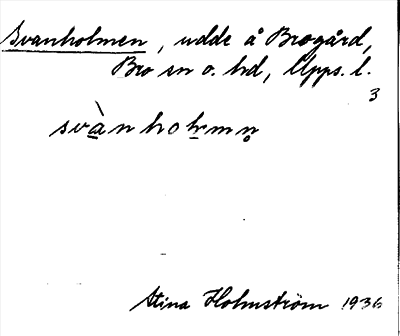 Svanholmen, udde å Brogård,
Bro sn o. hd, Upps. l.
3
svànholmn̥
Stina Holmström 1936